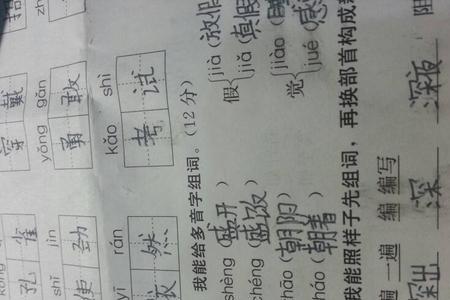 孔雀 穿戴
shǐ jìn yǒng gǎn
使劲 勇敢
yī rán kǎo shì
依然 考试
我能给多音字组词。(12分)
shèng(盛开) 假 jià(放假
chéng(盛饭) jiǎ(真假
(朝阳) 觉 jiào(
(朝着) jué(感
我能照样子先组词，再换部首构成
一遍 编 编写
深 深夜 阻